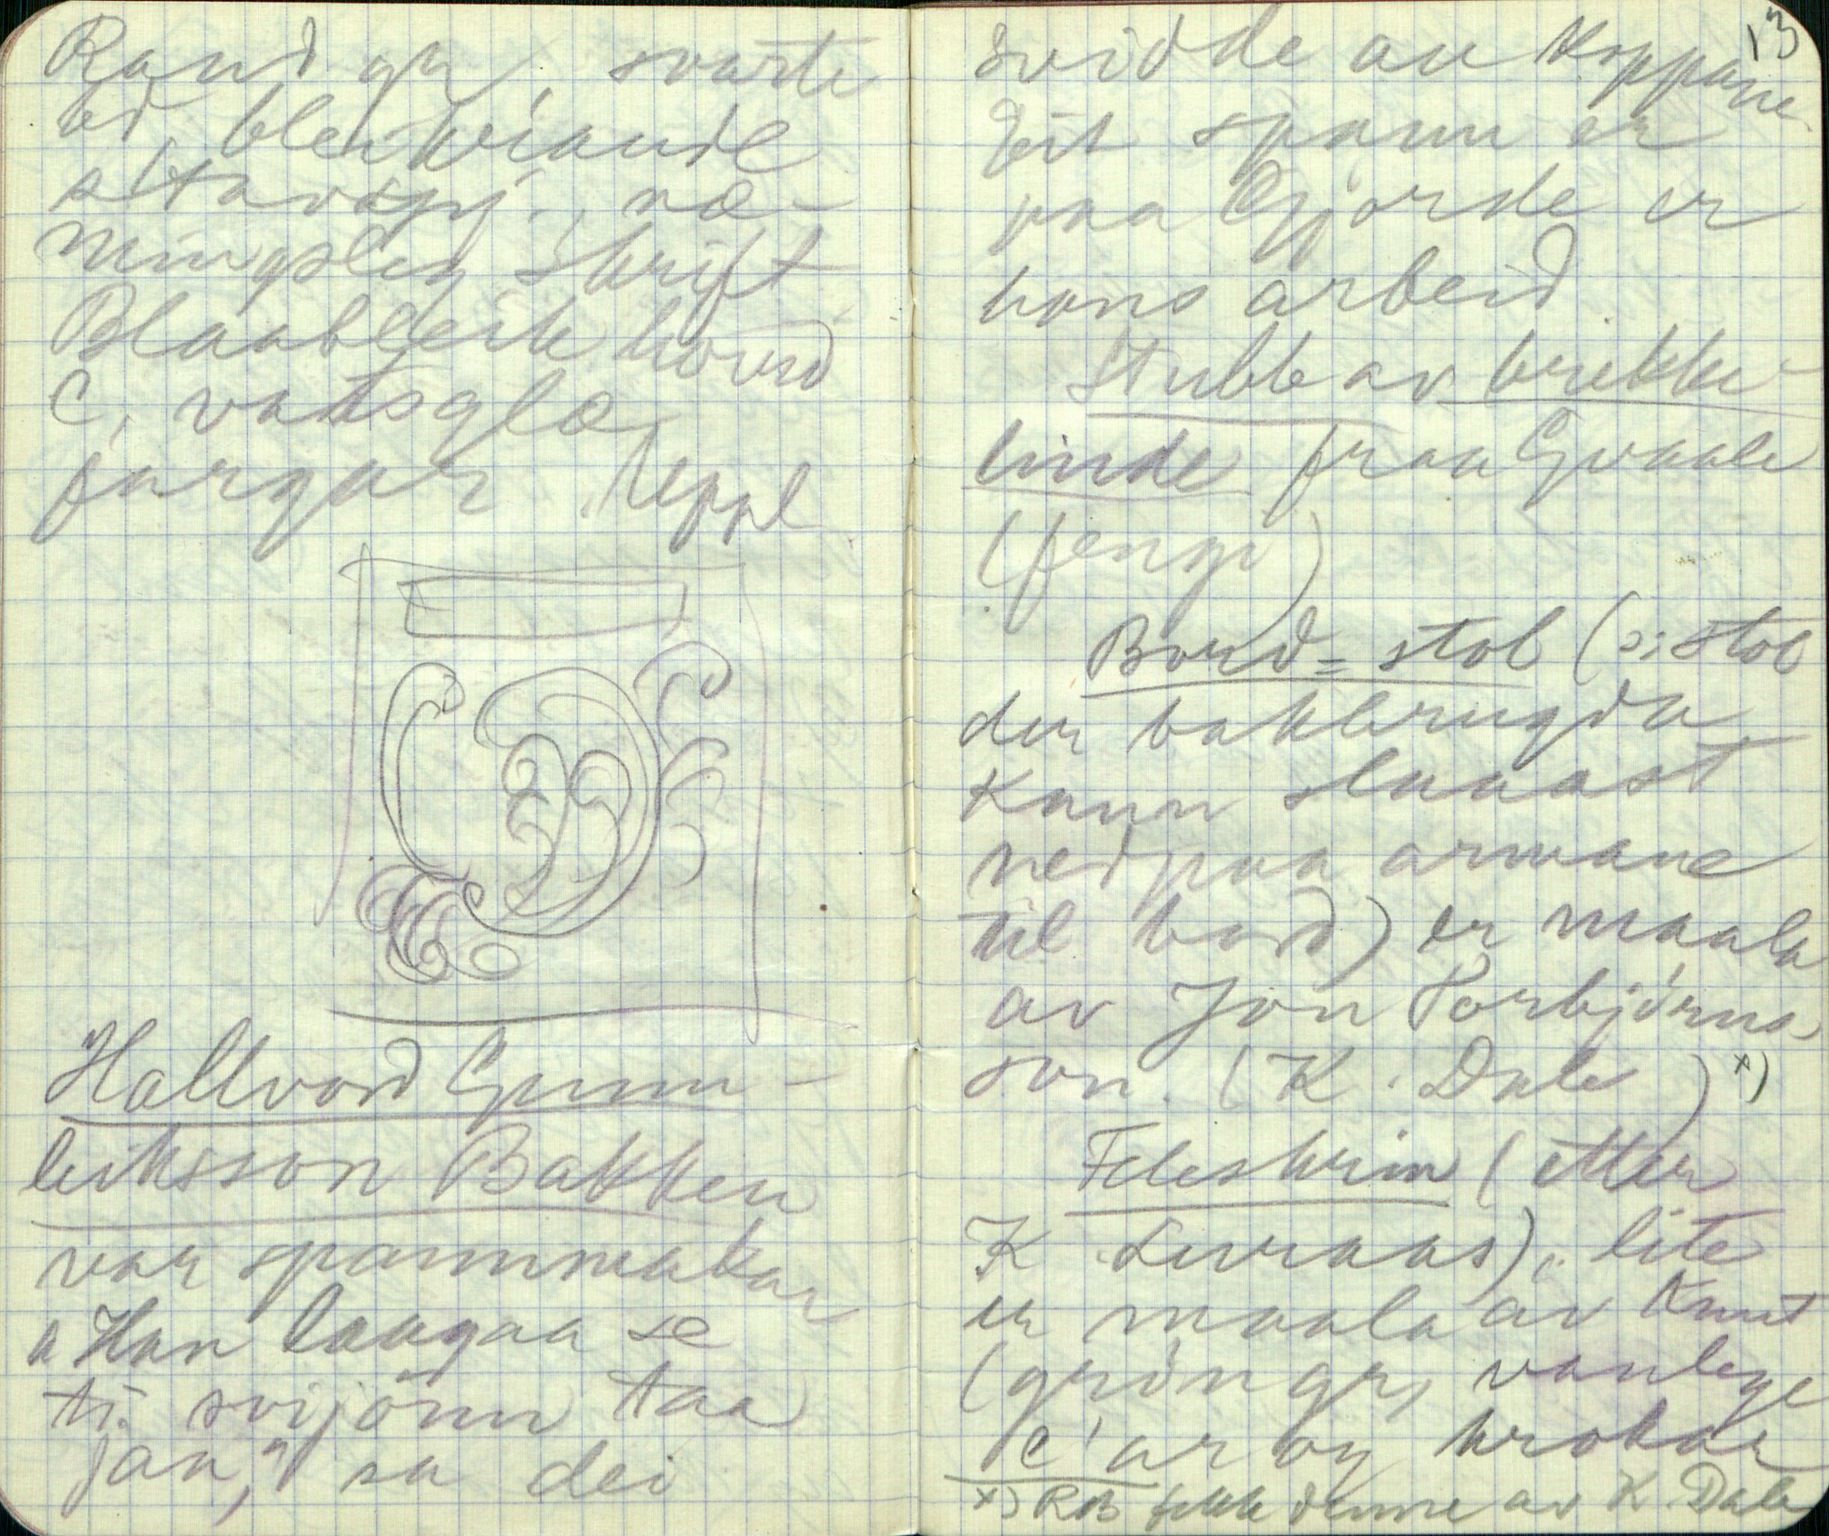 Raud gr, svarte
ed, bleikviande
stavspj., næ-
mingsleg skrift
Blaableik hovud
C, vatsglæ
fargar. Neppe
Hallvord Gunn-
leiksson Bakken
var spannmakar
"Han laagaa se
ti svijónn taa
jan," sa dei
13
svidde au koppane.
Eit spann er
paa Gjorde er
hans arbeid
Stubb av brikke-
linde fraa Gvaale
(fengi)
Bord-stol (ɔ: stol
der bakbrugda
kann slaaast
ned paa armane
til bord) er maala
av Jon Torbjörns-
son. (K. Dale) x)
Feleskrin (etter
K. Livraas), lite
er maala av Knut
(gröngr, vanlege
C'ar og krokar
x) RB fekk denne av K. Dale